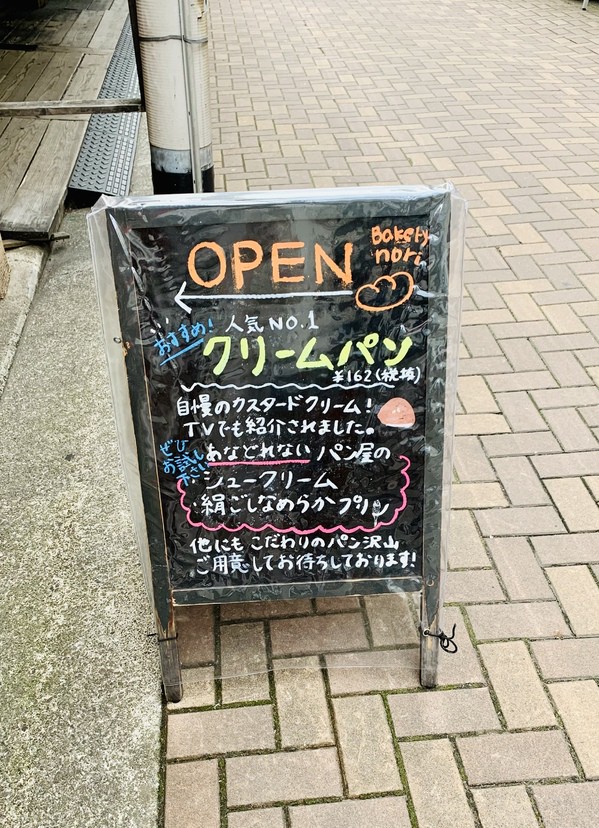 OPEN
Bakery
nori
おすすめ!
人気 NO.1
クリームパン
¥162(税抜)
自慢のカスタードクリーム!
TVでも紹介されました。
ぜひ
お試し
下さい
あなどれない パン屋の
シュークリーム
絹ごしなめらかプリン
他にも こだわりのパン沢山
ご用意してお待ちしております!